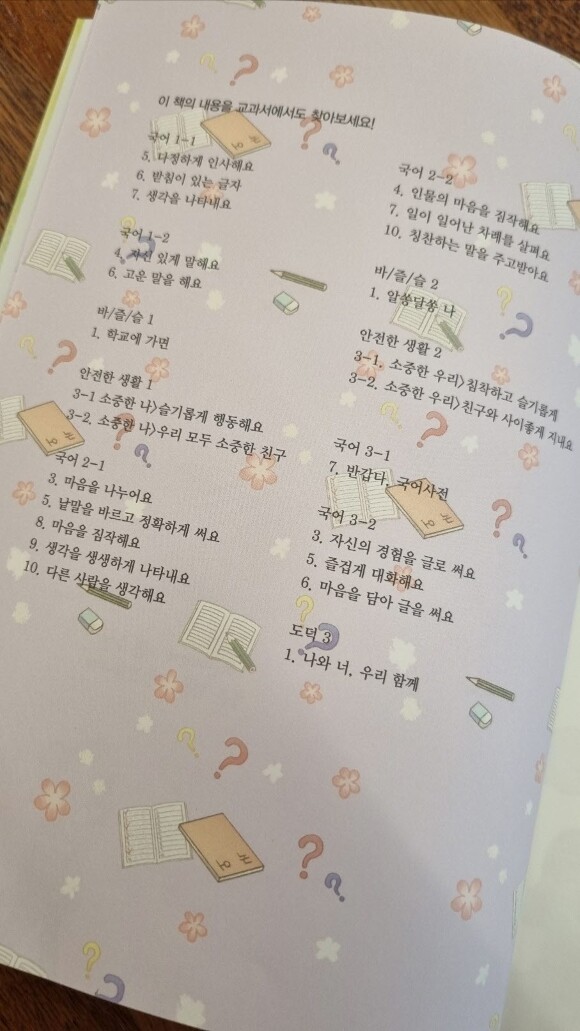 이 책의 내용을 교과서에서도 찾아보세요!
국어 1-1
5. 다정하게 인사해요
6. 받침이 있는 글자
7. 생각을 나타내요
국어 1-2
4. 자신 있게 말해요
6. 고운 말을 해요
바/즐/슬 1
1. 학교에 가면
안전한 생활 1
3-1 소중한 나>슬기롭게 행동해요
3-2. 소중한 나>우리 모두 소중한 친구
국어 2-1
3. 마음을 나누어요
5. 낱말을 바르고 정확하게 써요
8. 마음을 짐작해요
9. 생각을 생생하게 나타내요
10. 다른 사람을 생각해요
국어 2-2
4. 인물의 마음을 짐작해요
7. 일이 일어난 차례를 살펴요
10. 칭찬하는 말을 주고받아요
바/즐/슬 2
1. 알쏭달쏭 나
안전한 생활 2
3-1. 소중한 우리>침착하고 슬기롭게
3-2. 소중한 우리>친구와 사이좋게 지내요
국어 3-1
7. 반갑다, 국어사전
국어 3-2
3. 자신의 경험을 글로 써요
5. 즐겁게 대화해요
6. 마음을 담아 글을 써요
도덕 3
1. 나와 너, 우리 함께
국어
국어
국어
국어